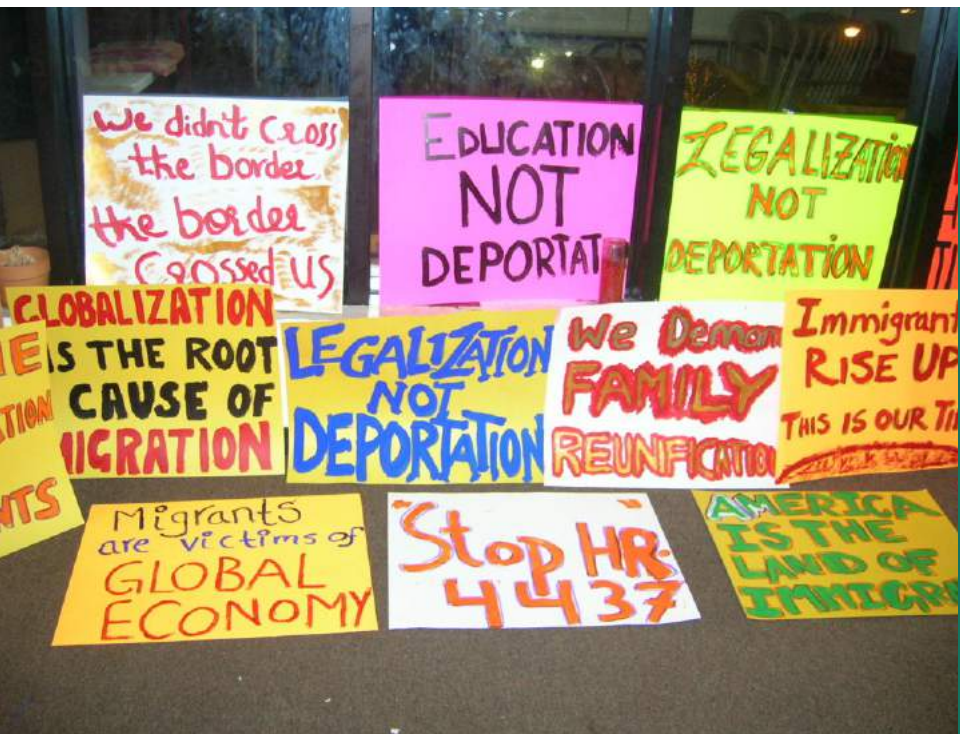 We didn't Cross
the border
the border
Crossed US
EDUCATION
NOT
DEPORTAT
LEGALIZATION
NOT
DEPORTATION
GLOBALIZATION
IS THE ROOT
CAUSE OF
MIGRATION
LEGALIZATION
NOT
DEPORTATION
We Deman
FAMILY
REUNIFICATIO
Immigrant
RISE UP
THIS IS OUR TI
Migrants
are victims of
GLOBAL
ECONOMY
"Stop HR.
4437"
AMERICA
IS THE
LAND OF
IMMIGR